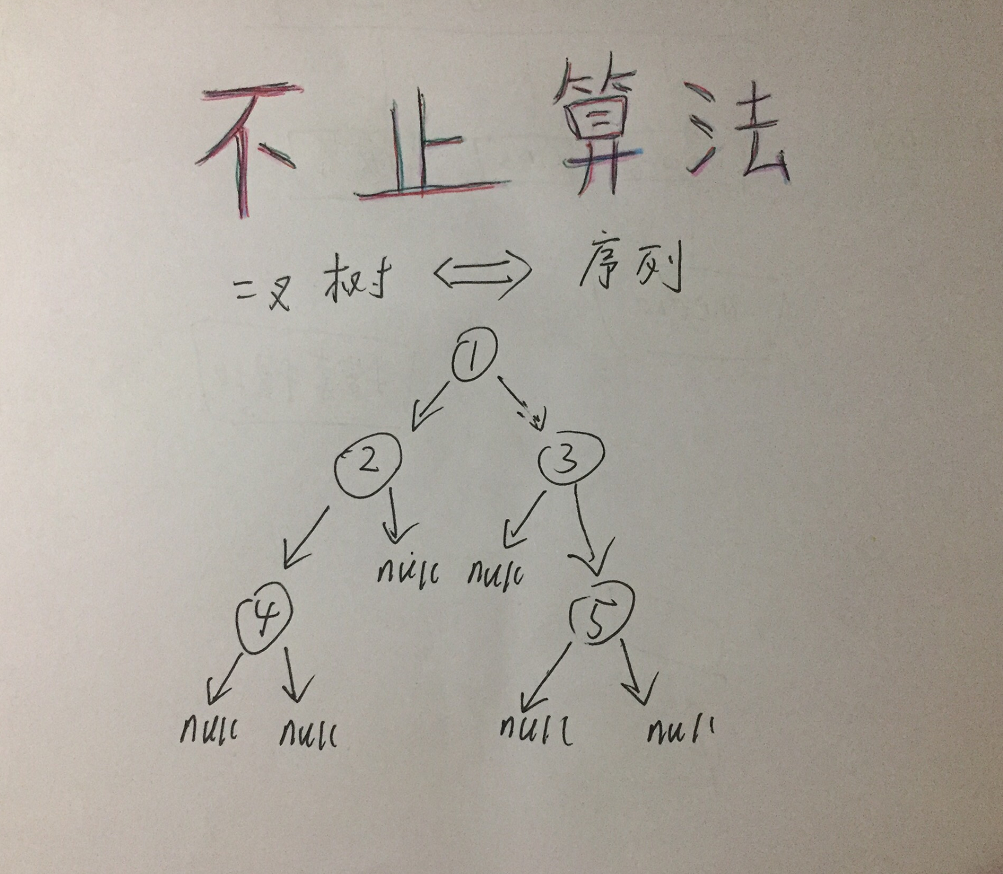 不止算法
二叉树 ⟺ 序列
1
2 3
null null
4 5
null null null null